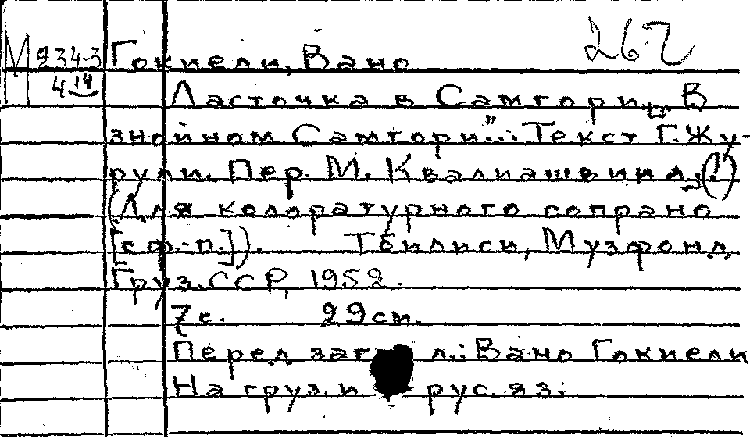 М 934-3 Гокиели, Вано 262
4 14 Ласточка в Самгори. „В
знойном Самгори"... Текст Г. Жу-
рули. Пер. М. Квалиашвили. (!)
(Для колоратурного сопрано
[с ф.-п.]). Тбилиси, Музфонд
Груз. ССР, 1952.
7 с. 29 см.
Перед загл.: Вано Гокиели
На груз. и рус. яз.